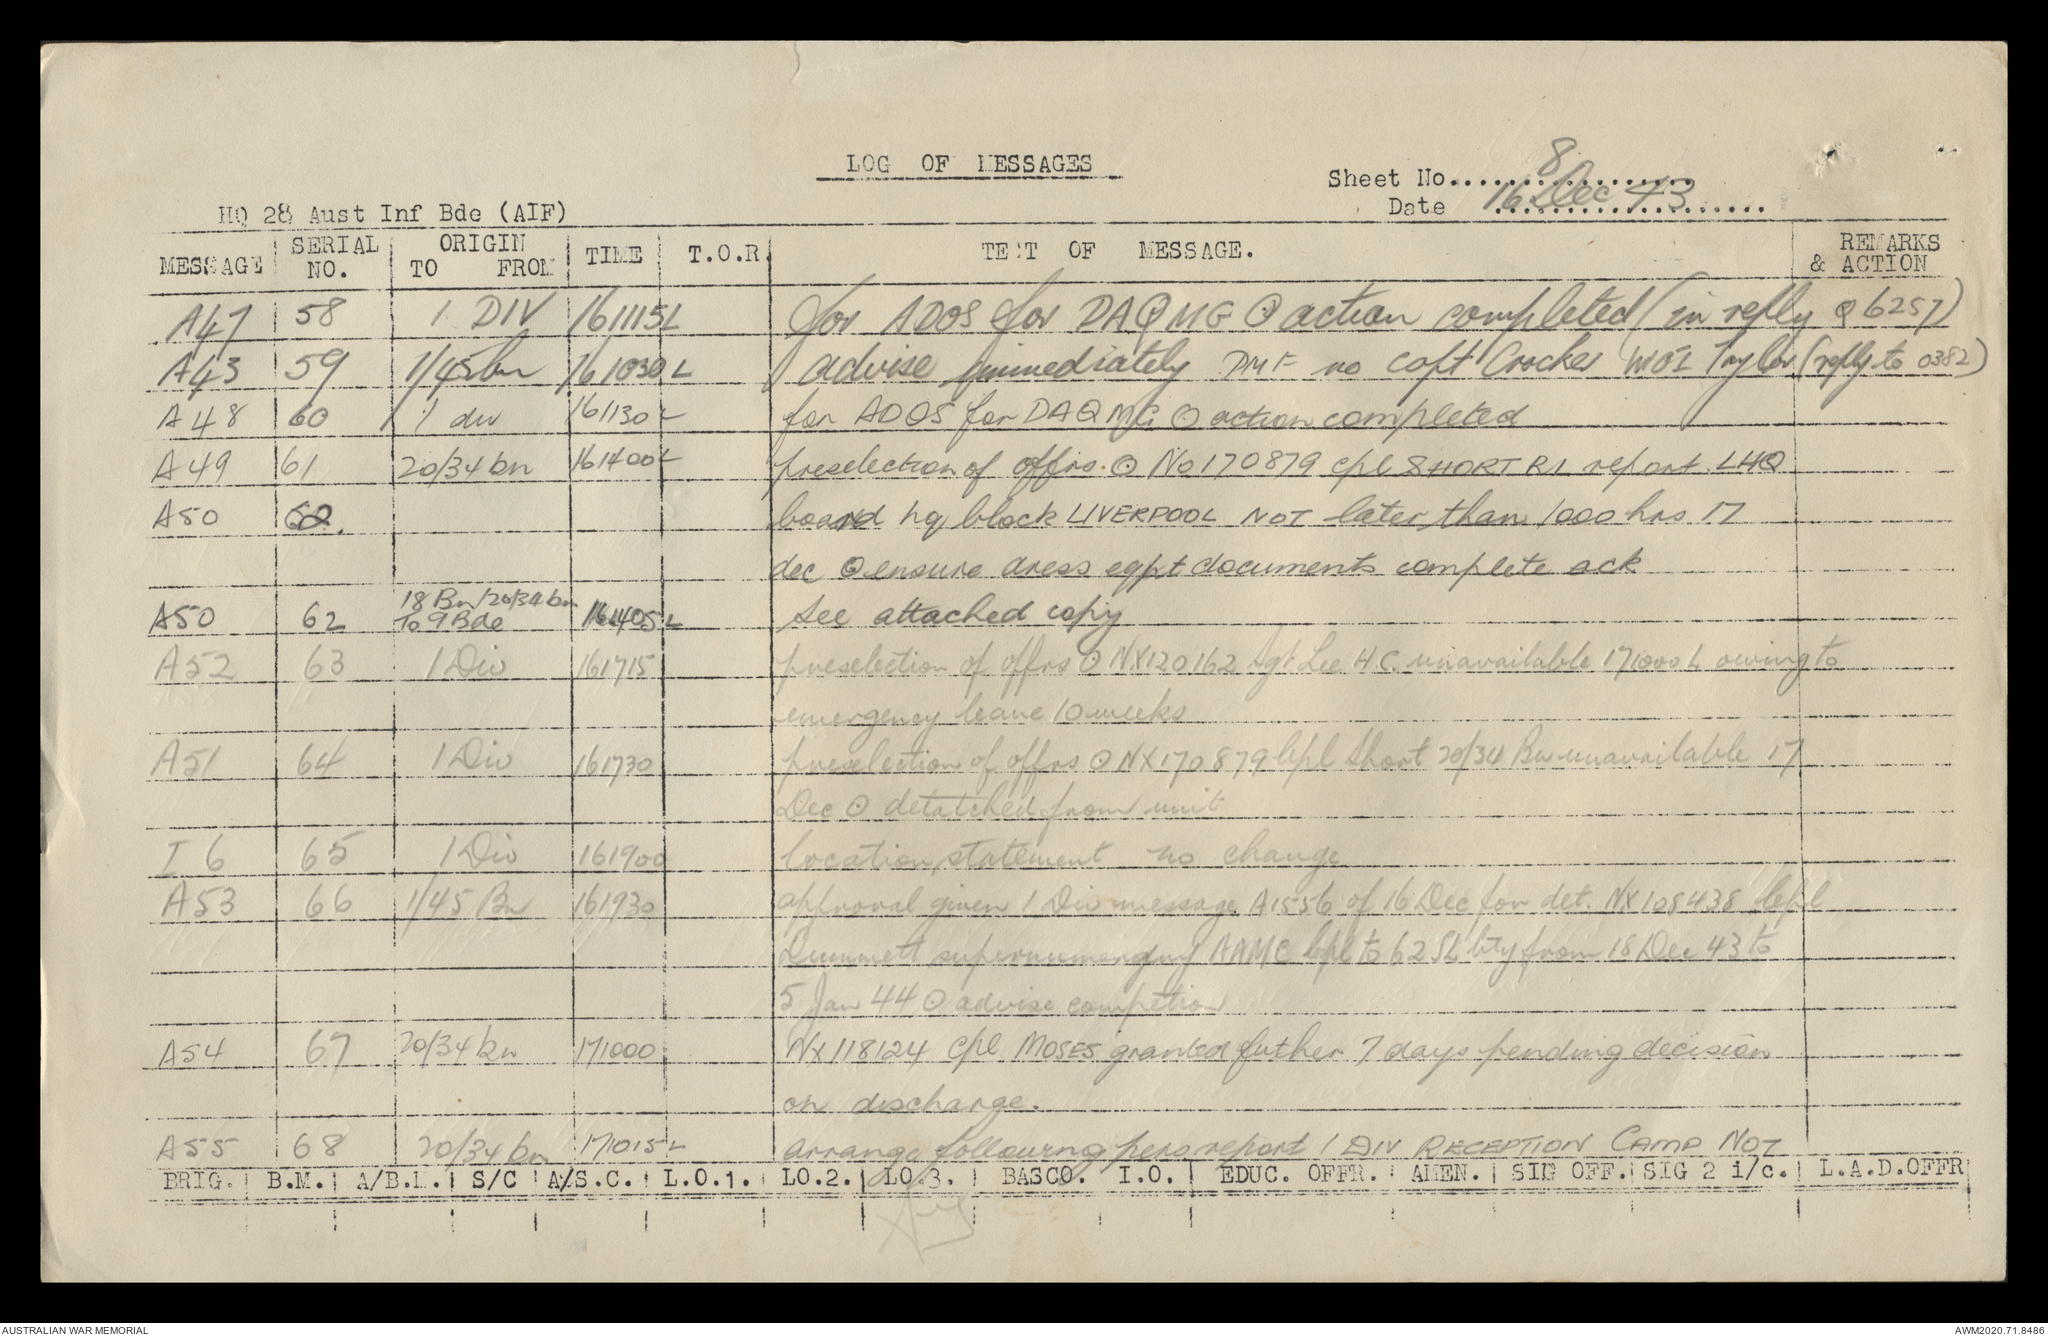 LOG OF MESSAGES
Sheet No. 8
Date 16 Dec 43
HQ 28 Aust Inf Bde (AIF)
MESSAGE SERIAL NO. ORIGIN TO FROM TIME T.O.R. TEXT OF MESSAGE. REMARKS & ACTION
A47 58 1 DIV 161115L for ADOS for DAQMG ⊙ action completed (in reply Q6257)
A43 59 1/45 bn 161030L advise immediately DMF no capt Crocker WO1 Taylor (reply to 0382)
A48 60 1 div 161130L for ADOS for DAQMG ⊙ action completed
A49 61 20/34 bn 161400L preselection of offrs. ⊙ No 170879 cpl SHORT R L report LHQ
A50 62. board hq block LIVERPOOL NOT later than 1000 hrs 17
dec ⊙ ensure dress eqpt documents complete ack
A50 62 18 Bn/20/34 bn To 9 Bde 161405L See attached copy
A52 63 1 Div 161715 preselection of offrs ⊙ NX120162 Sgt Lee H.C. unavailable 171000L owing to
emergency leave 10 weeks
A51 64 1 Div 161730 preselection of offrs ⊙ NX170879 Cpl Short 20/34 Bn unavailable 17
Dec ⊙ detatched from unit
I 6 65 1 Div 161900 location statement no change
A53 66 1/45 Bn 161930 approval given 1 Div message A1556 of 16 Dec for det. NX108438 Cpl
Dummett supernumerary AAMC Cpl to 62 SL bty from 18 Dec 43 to
5 Jan 44 ⊙ advise competion
A54 67 20/34 bn 171000 NX118124 Cpl MOSES granted futher 7 days pending decision
on discharge.
A55 68 20/34 bn 171015L arrange following pers report 1 DIV RECEPTION CAMP NOT
BRIG. B.M. A/B.M. S/C A/S.C. L.O.1. LO.2. LO.3. BASCO. I.O. EDUC. OFFR. AMEN. SIG OFF. SIG 2 i/c. L.A.D.OFFR
AUSTRALIAN WAR MEMORIAL AWM2020.71.8486